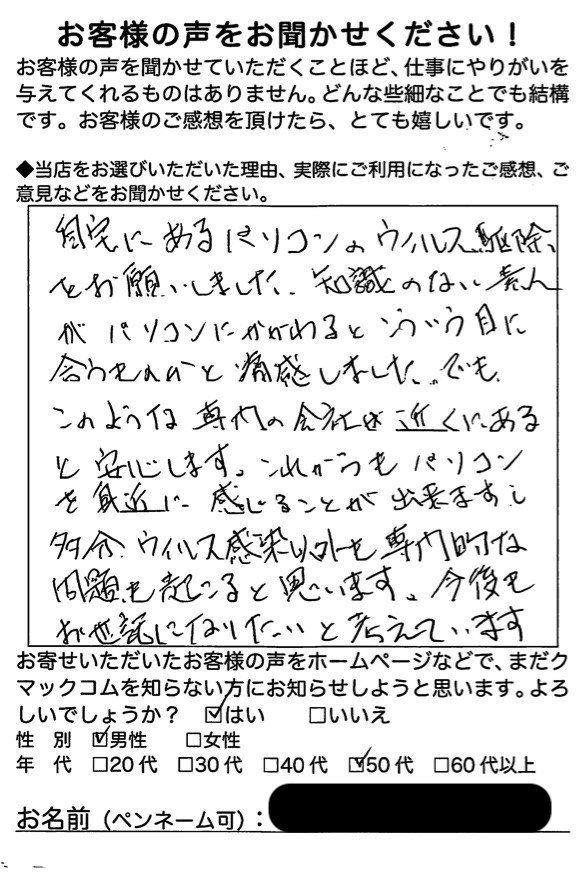 お客様の声をお聞かせください！
お客様の声を聞かせていただくことほど、仕事にやりがいを
与えてくれるものはありません。どんな些細なことでも結構
です。お客様のご感想を頂けたら、とても嬉しいです。
◆当店をお選びいただいた理由、実際にご利用になったご感想、ご
意見などをお聞かせください。
自宅にあるパソコンのウイルス駆除、
をお願いしました、知識のない素人
がパソコンにかかわるとこういう目に
合うものかと痛感しました。でも、
このような専門の会社が近くにある
と安心します。これからもパソコン
を身近に感じることが出来ますし
多分、ウィルス感染以外も専門的な
問題も起こると思います。今後も
お世話になりたいと考えています
お寄せいただいたお客様の声をホームページなどで、まだク
マックコムを知らない方にお知らせしようと思います。よろ
しいでしょうか？ ☑はい □いいえ
性 別 ☑男性 □女性
年 代 □20代 □30代 □40代 ☑50代 □60代以上
お名前（ペンネーム可）：